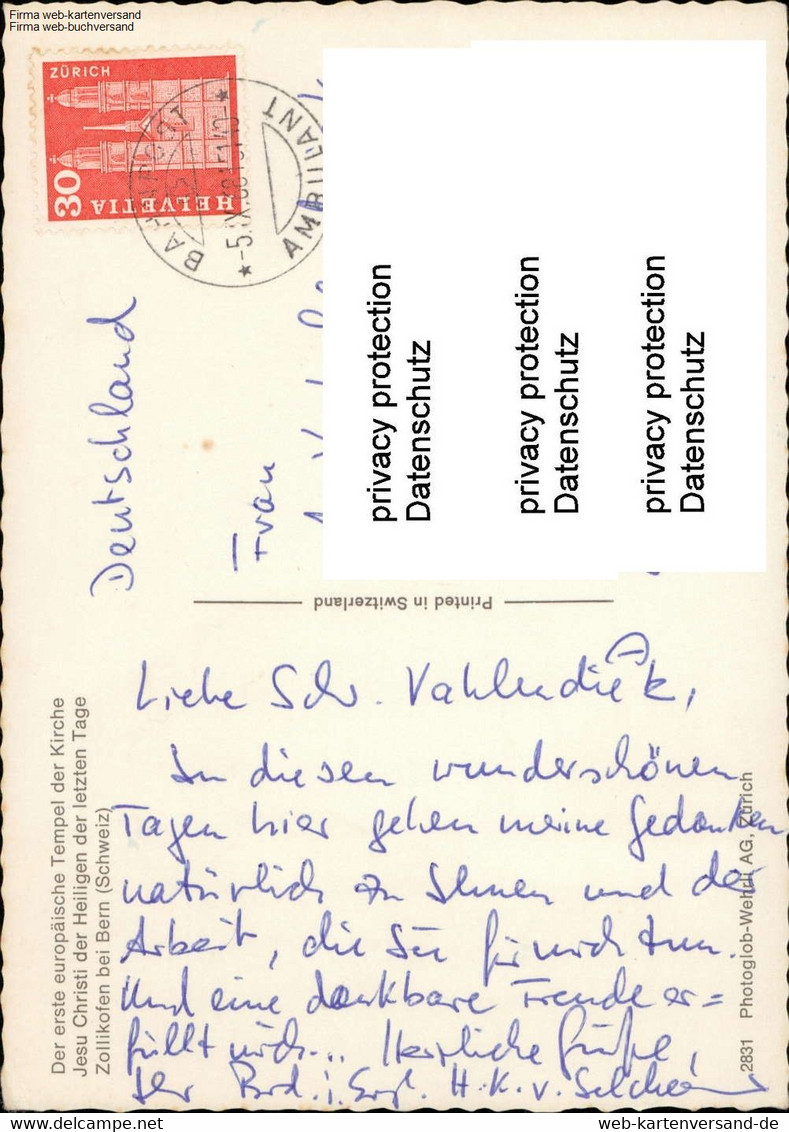 Firma web-kartenversand
Firma web-buchversand
ZÜRICH
30
HELVETIA
BAHNPOST
AMBULANT
-5.IX.
Deutschland
Frau
privacy protection
Datenschutz
privacy protection
Datenschutz
privacy protection
Datenschutz
Printed in Switzerland
Der erste europäische Tempel der Kirche
Jesu Christi der Heiligen der letzten Tage
Zollikofen bei Bern (Schweiz)
Liebe Schw. Vahlendiek,
In diesen wunderschönen
Tagen hier gehen meine Gedanken
natürlich zu Ihnen und der
Arbeit, die Sie für mich tun.
Und eine dankbare Freude er=
füllt mich... Herzliche Grüße,
Ihr Brd. i. Evgl. H.K.v.
2831 Photoglob-Wehrli AG, Zürich
web-kartenversand-de